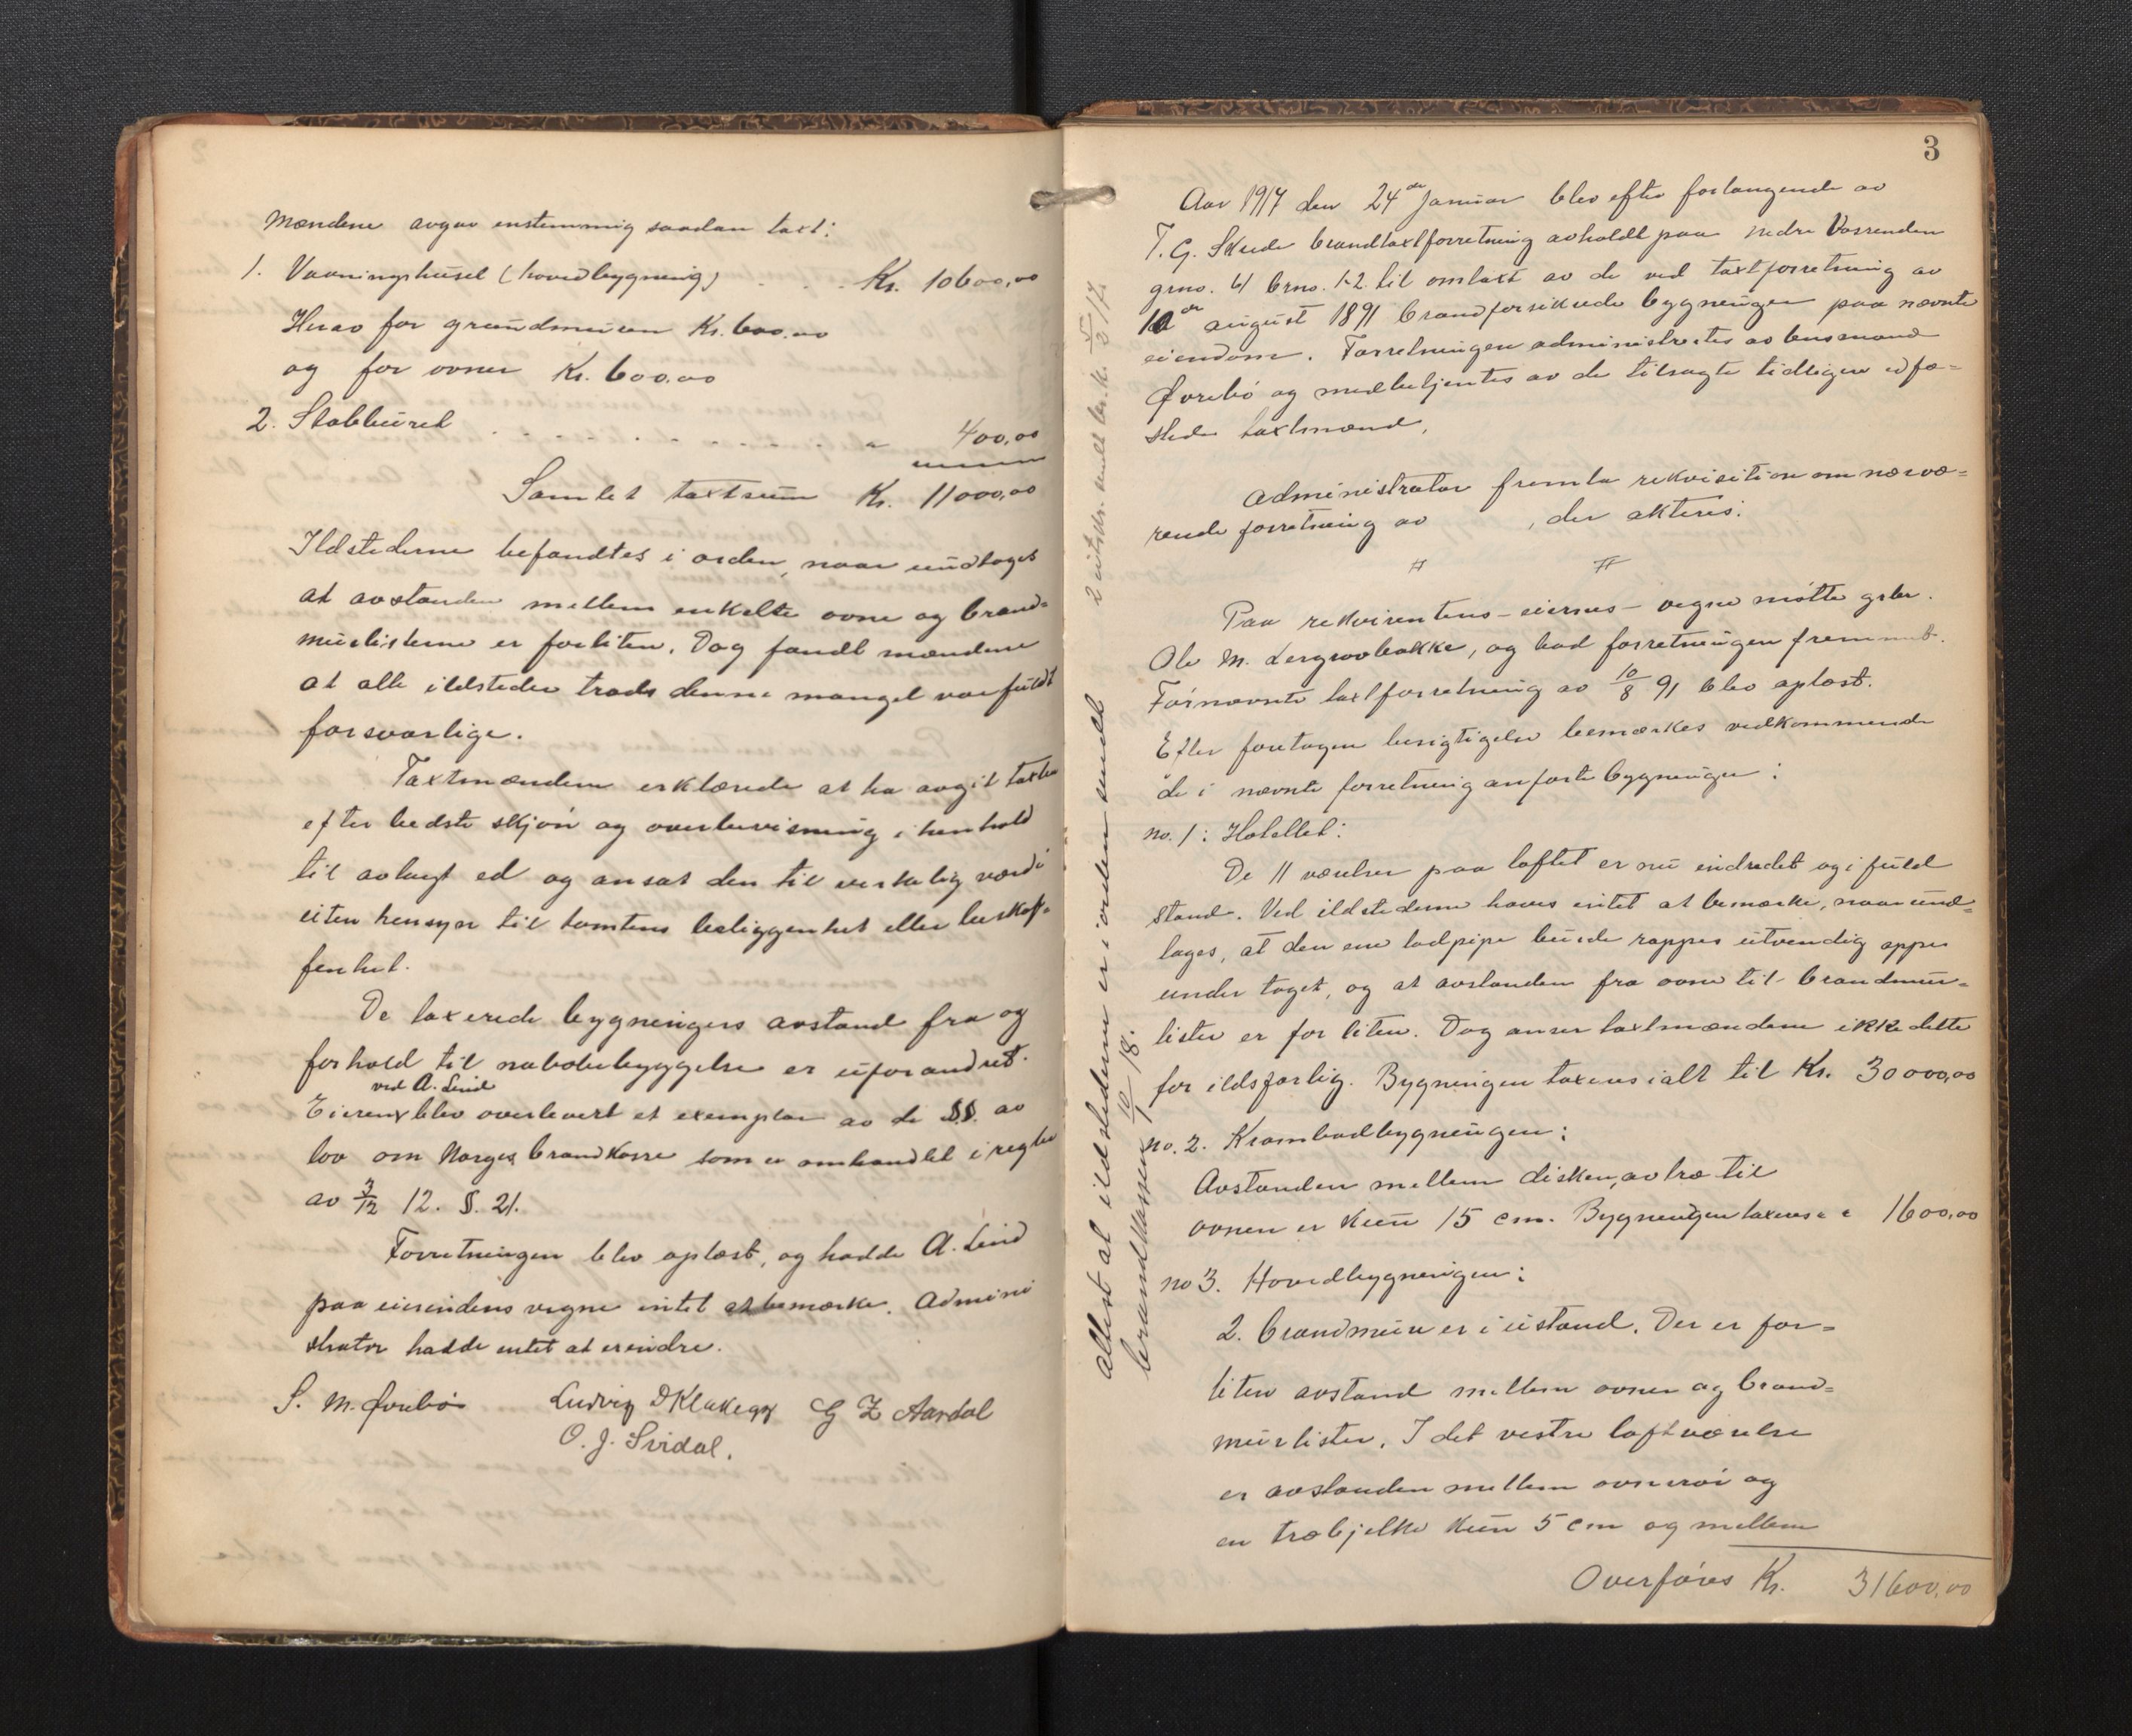 Mændene avgav enstemmig saadan taxt:
1. Vaaningshuset (hovedbygning) . . . Kr. 10600,00
Herav for grundmuren Kr. 600.00
og for ovner Kr. 600.00
2. Stabburet . . . . . . . . . . " 400,00
Samlet taxtsum Kr. 11000,00
Ildstederne befandtes i orden, naar undtages
at avstanden mellem enkelte ovne og brand=
murlisterne er for liten. Dog fandt mændene
at alle ildsteder trods denne mangel var fuldt
forsvarlige.
Taxtmændene erklærede at ha avgit taxten
efter bedste skjøn og overbevisning i henhold
til avlagt ed og ansat den til virkelig værdi
uten hensyn til tomtens beliggenhet eller beskaf=
fenhet.
De taxerede bygningers avstand fra og
forhold til nabobebyggelse er uforandret.
ved A. Lind
Eieren blev overlevert et exemplar av de §§. av
lov om Norges Brandkasse som er omhandlet i regler
av 3/12 12. §. 21.
Forretningen blev oplæst, og hadde A. Lind
paa eierindens vegne intet at bemærke. Admini
strator hadde intet at erindre.
S. M. Ørebø Ludvig D Klakegg G Z Aardal
O. J. Svidal.
3
Aar 1917 den 24de Januar blev efter forlangende av
T. G. Skrede brandtaxtforretning avholdt paa nedre Vassenden
grno. 41 brno. 1-2 til omtaxt av de ved taxtforretning av
10de august 1891 brandforsikrede bygninger paa nævnte
eiendom. Forretningen administrertes av lensmand
Ørebø og medbetjentes av de tilsagte tidligere edfæ=
stede taxtmænd.
Administrator fremla rekvisition om nærvæ=
rende forretning av , der akteres:
# #
Paa rekvirentens - eierens - vegne møtte grbr.
Ole M. Lergrovbakke, og bad forretningen fremmet.
Førnævnte taxtforretning av 10/8 91 blev oplæst.
Efter foretagen besigtigelse bemærkes vedkommende
de i nævnte forretning anførte bygninger:
no. 1: Hotellet:
De 11 værelser paa loftet er nu indredet og i fuld
stand. Ved ildstederne haves intet at bemærke, naar und=
tages, at den ene ladpipe burde rappes utvendig oppe
under taget, og at avstanden fra ovne til brandmur=
lister er for liten. Dog anser taxtmændene ikke dette
for ildsfarlig. Bygningen taxeres ialt til Kr. 30000,00
no. 2. Krambodbygningen:
Avstanden mellem disken, av træ til
ovnen er kun 15 cm. Bygningen taxeres " " 1600,00
no 3. Hovedbygningen:
2. brandmure er i ustand. Der er for=
liten avstand mellem ovner og brand=
murlister. I det vestre loftværelse
er avstanden mellem ovnsrør og
en træbjelke kun 5 cm og mellem
Overføres Kr. 31600,00
2 utskr. sendt br.k. 5/2 17
Attest at ildstederne er i orden sendt
brandkassen 10/1 18.